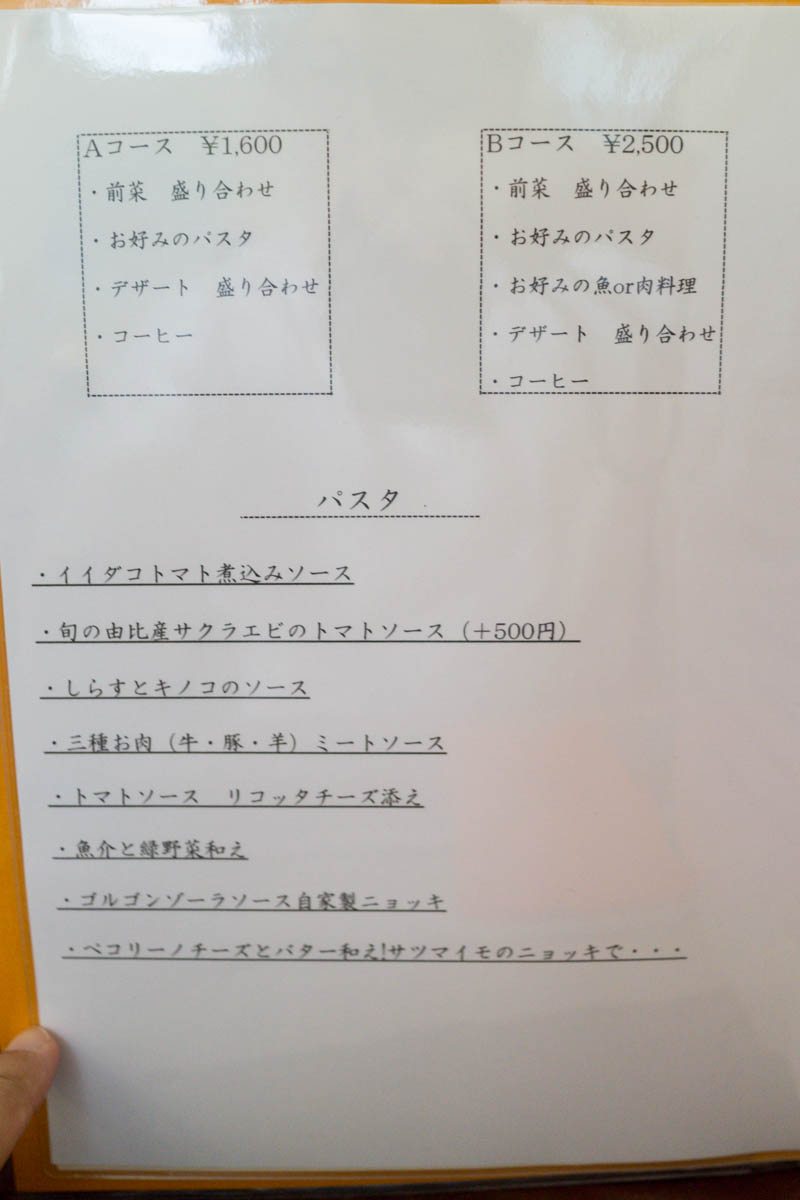 Aコース　¥1,600
・前菜　盛り合わせ
・お好みのパスタ
・デザート　盛り合わせ
・コーヒー
Bコース　¥2,500
・前菜　盛り合わせ
・お好みのパスタ
・お好みの魚or肉料理
・デザート　盛り合わせ
・コーヒー
パスタ
・イイダコトマト煮込みソース
・旬の由比産サクラエビのトマトソース（＋500円）
・しらすとキノコのソース
・三種お肉（牛・豚・羊）ミートソース
・トマトソース　リコッタチーズ添え
・魚介と緑野菜和え
・ゴルゴンゾーラソース自家製ニョッキ
・ペコリーノチーズとバター和え!サツマイモのニョッキで・・・